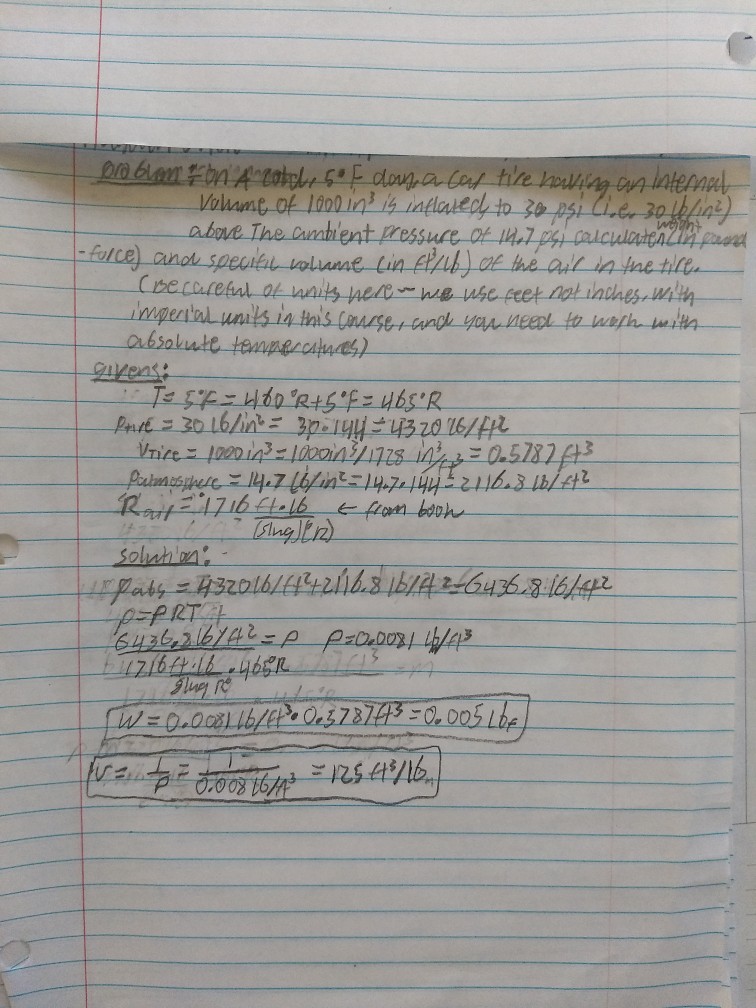 problem: On A cold, 5°F day, a car tire having an internal
volume of 1000 in³ is inflated to 30 psi (i.e. 30 lb/in²)
above The ambient pressure of 14.7 psi calculate weight (in pound
-force) and specific volume (in ft³/lb) of the air in the tire.
(Be careful of units here – we use feet not inches, with
imperial units in this course, and you need to work with
absolute temperatures)
givens:
T = 5°F = 460°R + 5°F = 465°R
Ptire = 30 lb/in² = 30·144 = 4320 lb/ft²
Vtire = 1000in³ = 1000in³/1728 in³/ft³ = 0.5787 ft³
Patmosphere = 14.7 lb/in² = 14.7·144 = 2116.8 lb/ft²
Rair = 1716 ft·lb ← from book
(slug)(°R)
solution:
Pabs = 4320 lb/ft² + 2116.8 lb/ft² = 6436.8 lb/ft²
p = ρRT
6436.8 lb/ft² = ρ ρ = 0.0081 lb/ft³
1716 ft·lb · 465°R
slug R°
W = 0.0081 lb/ft³ · 0.5787 ft³ = 0.005 lbf
v = 1/ρ = 1/0.008 lb/ft³ = 125 ft³/lbm